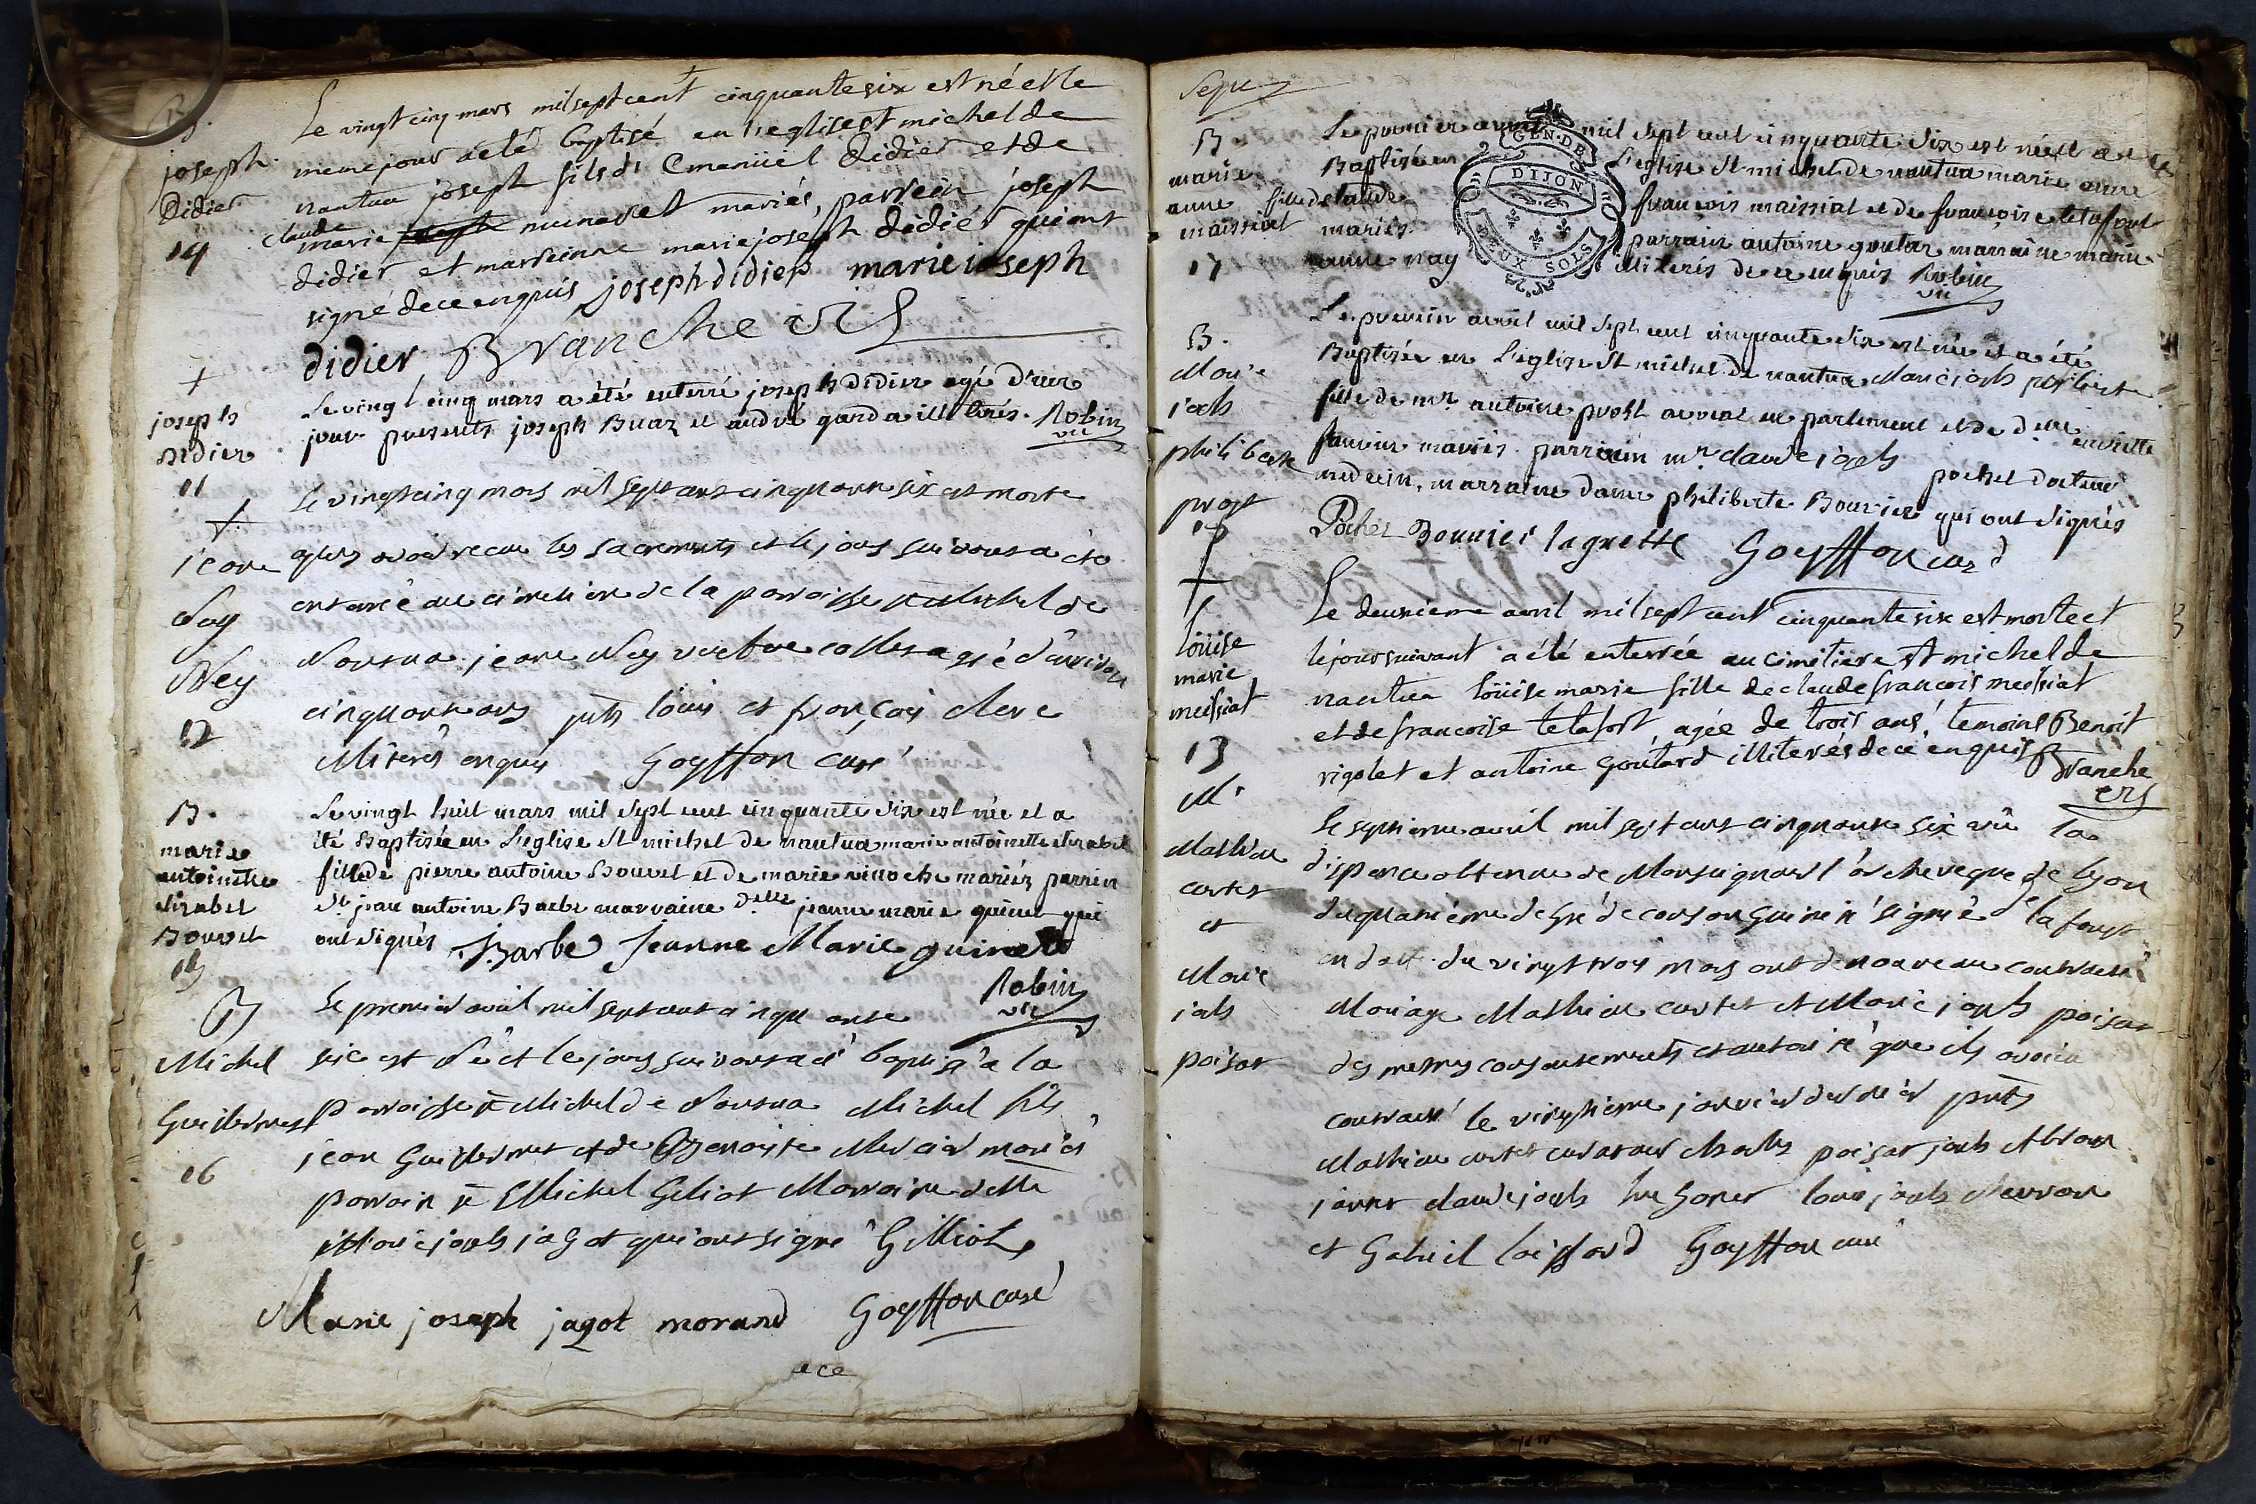 B.
joseph
Didier
14
Le vingt cinq mars mil sept cent cinquante six est né et le
meme jour a eté baptisé en l'eglise st michel de
nantua joseph fils d'Emanüel Didier et de
claude
marie musarret mariés, parrein joseph
didier et marreinne marie joseph didier qui ont
signé de ce enquis joseph didier marie joseph
didier Branche vic
+
joseph
didier
11
Le vingt cinq mars a été enterré joseph didier agé d'un
jour presents joseph Buaz et andré illiterés. Robin
vic
+
jeane
Ney
12
le vingt cinq mars mil sept cent cinquante six est morte
apres avoir recue les sacrements et le jour suivant a eté
enterré au cimetiere de la paroisse st Michel de
Nantua jeane Ney veufve agé d'environ
cinquante ans pnts loüis et françois clerc
illiterés enquis Goyffon curé
B.
marie
antoinette
elizabet
Bouvet
15
Le vingt huit mars mil sept cent cinquante six est née et a
été Baptisée en L'eglise St michel de nantua marie antoinette elizabet
fille de pierre antoine Bouvet et de marie mariéz parrin
Sr jean antoine Barbe marraine delle jeanne marie quinet qui
ont signés Barbe Jeanne Marie quinet
Robin
vic
B
Michel
Guillermet
16
le premier avril mil sept cent cinquante
six est né et le jour suivant a eté baptisé a la
paroisse st Michel de Nantua Michel fils
jean Guillermet et de Benoiste Mercier mariés
parrain sr Michel Giliot Marraine delle
Marie joseph jagot qui ont signé Gilliot
Marie joseph jagot morand Goyffon curé
ace
B
marie
anne
maissiat
17
Le premier avril mil sept cent cinquante six est née et a eté
Baptisée en L'eglise St michel de nantua marie anne
fille de claude françois maissiat et de françoise tetafort
mariés parrain antoine goutar marraine marie
anne nay illiterés de ce enquis Robin
vic
GEN. DE
DIJON
DEUX SOLS
B.
Marie
josph
philiberte
prost
Le premier avril mil sept cent cinquante six est née et a été
Baptisée en L'eglise St michel de nantua Marie josph philiberte
fille de mr antoine prost avocat en parlement et de delle
mariés parrain mr claude joseph pochet docteur
medecin, marraine dame philiberte Bouvier qui ont signés
Pochet Bouvier laguette Goyffon curé
+
loüise
marie
messiat
13
Le deuxieme avril mil sept cent cinquante six est morte et
le jour suivant a été enterrée au cimetiere st michel de
nantua loüise marie fille de claude francois messiat
et de francoise tetafort, agée de trois ans, temoins Benoit
rigolet et antoine goutard illiterés de ce enquis Branche
vic
M.
Mathieu
cartet
et
Marie
josph
poisat
le septieme avril mil sept cent cinquante six vû la
dispence obtenue de Monseigneur l'archeveque de lyon
du quatrieme degré de consanguinité signé de la font
en date du vingt trois mars ont de nouveau contracté
Mariage Mathieu cartet et Marie joseph poisat
des mesmes consentements et autorité que ils avoien
contracté le vingtieme janvier dernier pnts
Mathieu cartet curateur charles poisat josph
claude joseph louis joseph
et Gabriel Goyffon curé